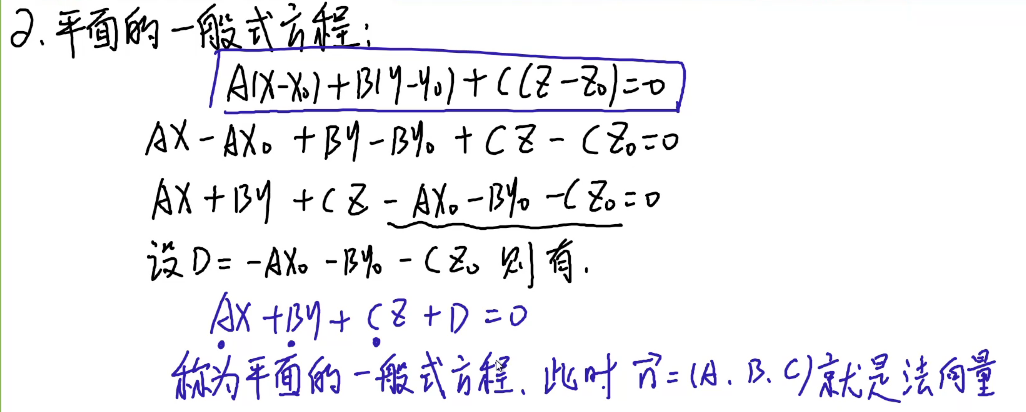 2.平面的一般式方程:
A(X-X₀)+B(y-y₀)+C(Z-Z₀)=0
AX-AX₀+By-By₀+CZ-CZ₀=0
AX+By+CZ-AX₀-By₀-CZ₀=0
设D=-AX₀-By₀-CZ₀ 则有.
AX+By+CZ+D=0
称为平面的一般式方程.此时 n⃗=(A.B.C)就是法向量